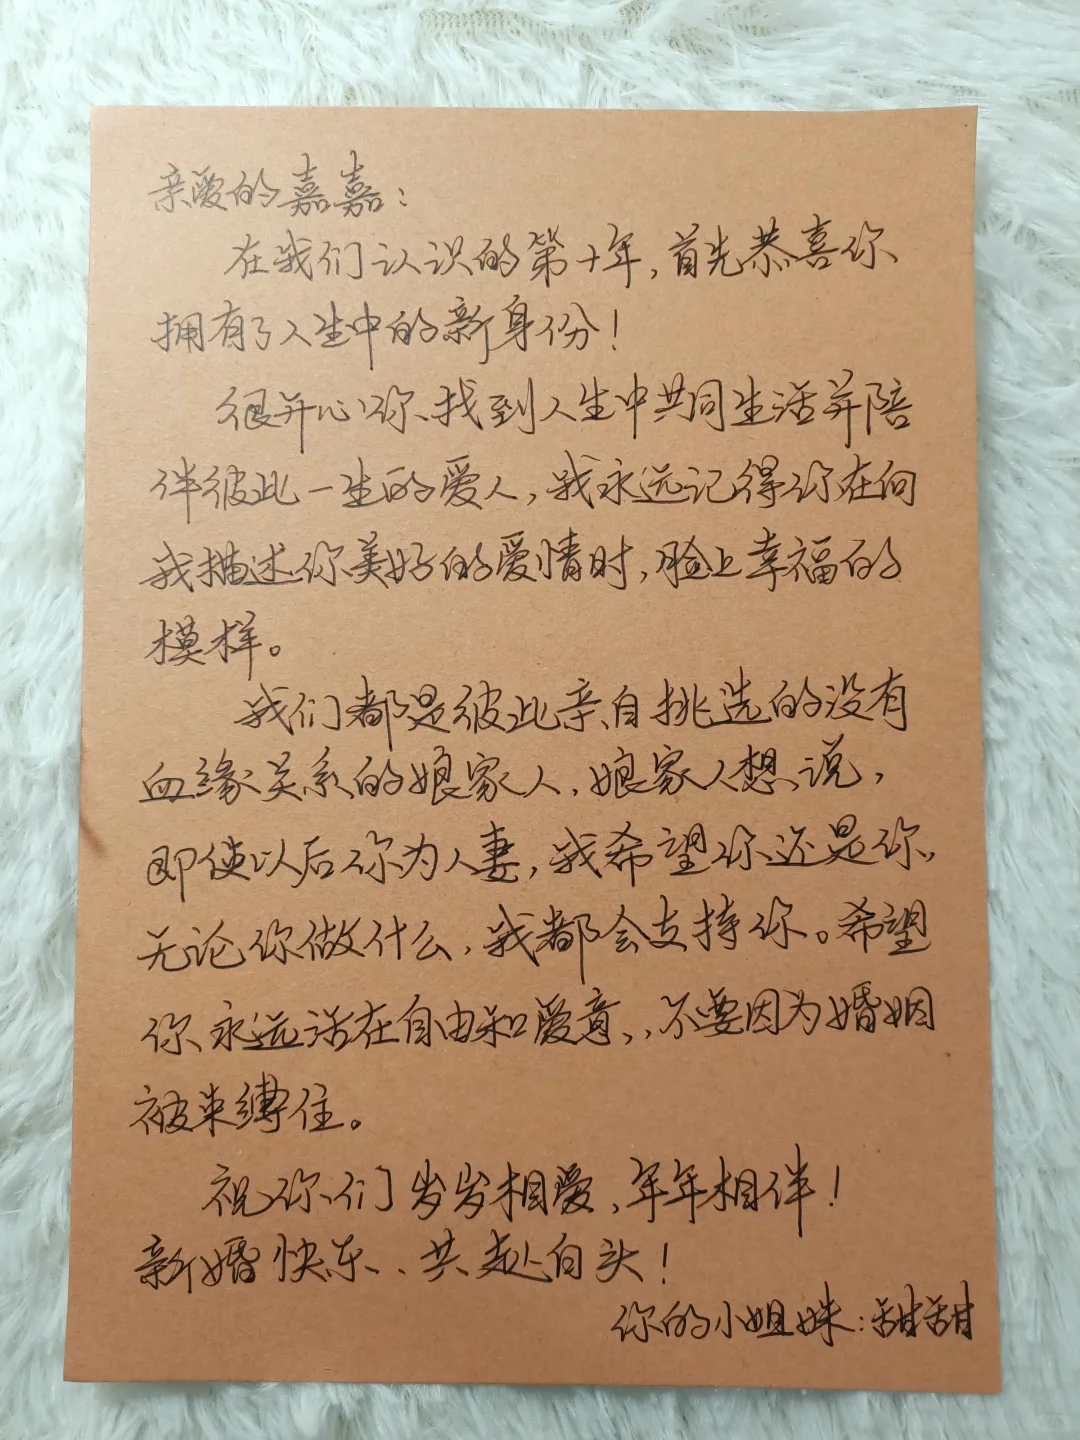 亲爱的嘉嘉：
在我们认识的第十年，首先恭喜你
拥有了人生中的新身份！
很开心你找到人生中共同生活并陪
伴彼此一生的爱人，我永远记得你在向
我描述你美好的爱情时，脸上幸福的
模样。
我们都是彼此亲自挑选的没有
血缘关系的娘家人，娘家人想说，
即使以后你为人妻，我希望你还是你，
无论你做什么，我都会支持你。希望
你永远活在自由和爱意，不要因为婚姻
被束缚住。
祝你们岁岁相爱，年年相伴！
新婚快乐、共赴白头！
你的小姐妹：甜甜